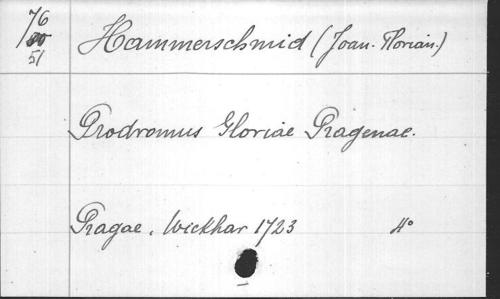 76
Hammerschmid (Joan. Florian.)
51
Prodromus Gloriae Pragenae.
Pragae, Wickhar 1723 4°